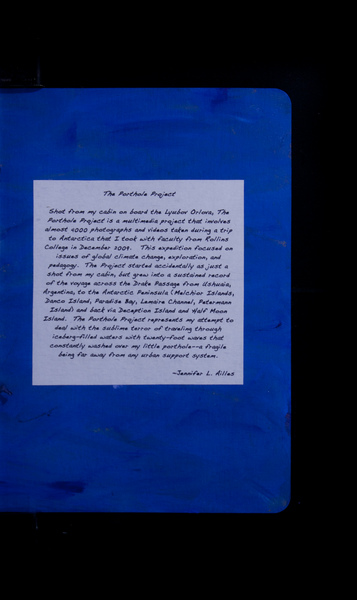 The Porthole Project
Shot from my cabin on board the Lyubov Orlova, The
Porthole Project is a multimedia project that involves
almost 4000 photographs and videos taken during a trip
to Antarctica that I took with faculty from Rollins
College in December 2009. This expedition focused on
issues of global climate change, exploration, and
pedagogy. The Project started accidentally as just a
shot from my cabin, but grew into a sustained record
of the voyage across the Drake Passage from Ushuaia,
Argentina, to the Antarctic Peninsula (Melchior Islands,
Danco Island, Paradise Bay, Lemaire Channel, Petermann
Island) and back via Deception Island and Half Moon
Island. The Porthole Project represents my attempt to
deal with the sublime terror of traveling through
iceberg-filled waters with twenty-foot waves that
constantly washed over my little porthole--a fragile
being far away from any urban support system.
~Jennifer L. Ailles